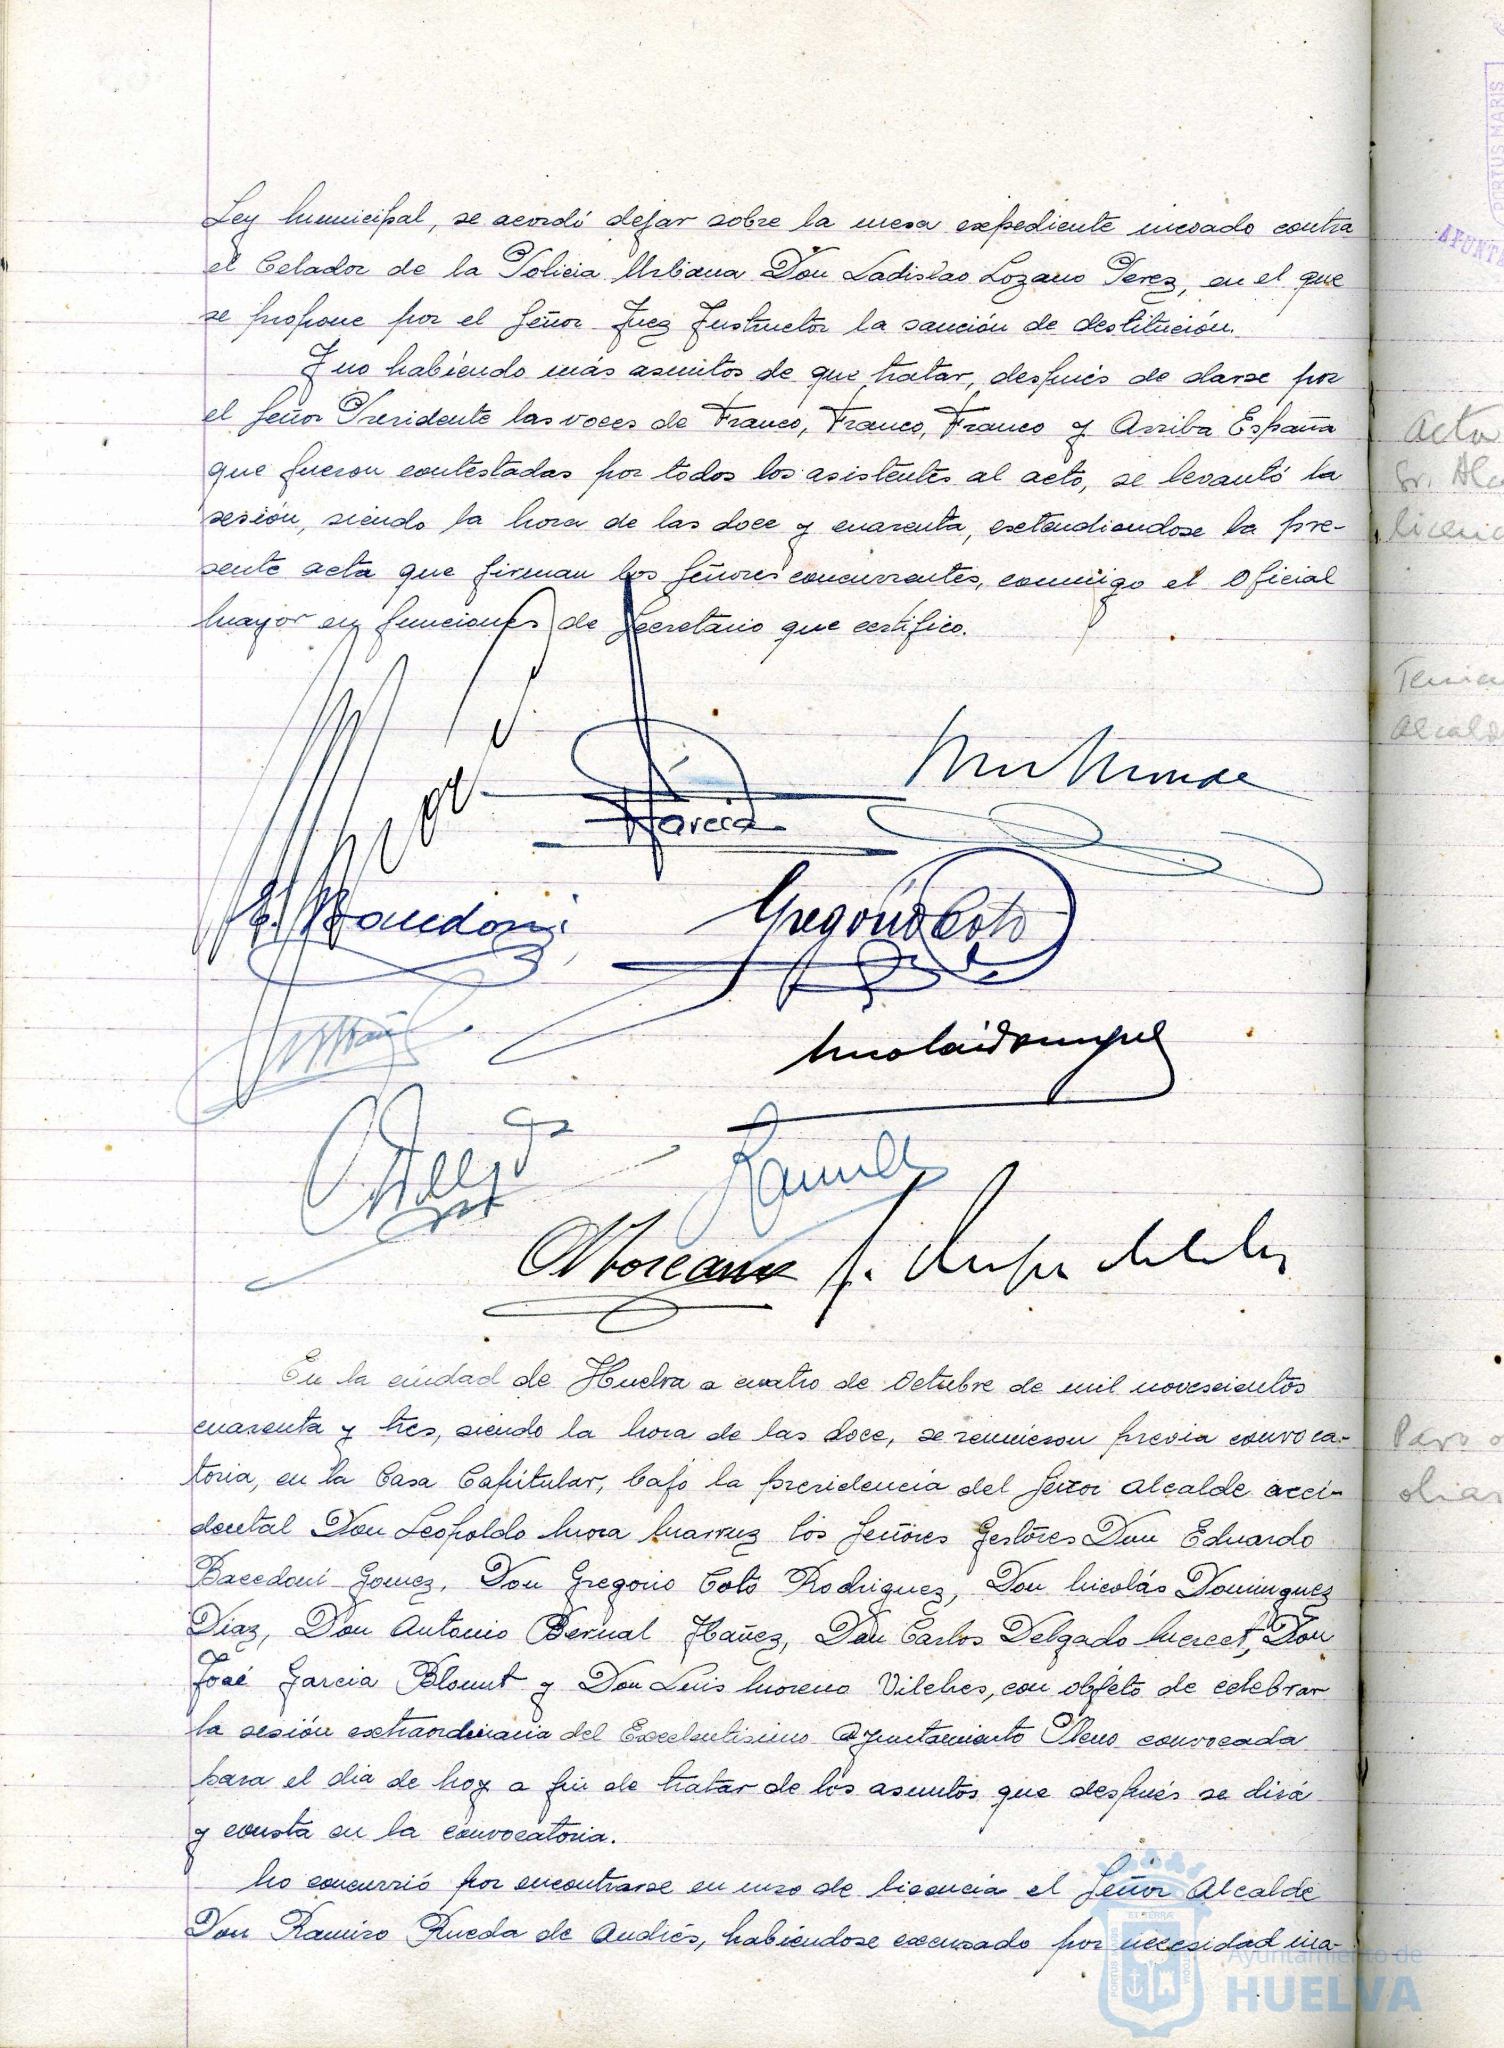 Ley Municipal, se acordó dejar sobre la mesa expediente incoado contra
el Celador de la Policia Urbana Don Ladislao Lozano Perez, en el que
se propone por el Señor Juez Instructor la sanción de destitución.
Y no habiendo más asuntos de que tratar, después de darse por
el Señor Presidente las voces de Franco, Franco, Franco y Arriba España
que fueron contestadas por todos los asistentes al acto, se levantó la
sesión, siendo la hora de las doce y cuarenta, extendiendose la pre-
sente acta que firman los Señores concurrentes, conmigo el Oficial
Mayor en funciones de Secretario que certifico.
Garcia
E. Bacedoni
Gregorio Coto
Nicolás Dominguez
En la ciudad de Huelva a cuatro de Octubre de mil novescientos
cuarenta y tres, siendo la hora de las doce, se reunieron previa convoca-
toria, en la Casa Capitular, bajo la presidencia del Señor Alcalde acci-
dental Don Leopoldo Mora los Señores Gestores Don Eduardo
Bacedoni Gomez, Don Gregorio Coto Rodriguez, Don Nicolás Dominguez
Diaz, Don Antonio Bernal Ibañez, Don Carlos Delgado Mercet, Don
José Garcia Blount y Don Luis Moreno Vilches, con objeto de celebrar
la sesión extraordinaria del Excelentisimo Ayuntamiento Pleno convocada
para el dia de hoy a fin de tratar de los asuntos que después se dirá
y consta en la convocatoria.
No concurrió por encontrarse en uso de licencia el Señor Alcalde
Don Ramiro Rueda de Andrés, habiendose excusado por necesidad ina-
Acta
Sr. Alc
licenc
Tenien
Alcald
Paro o
dias
PORTUS MARIS
Ayuntamiento de
HUELVA